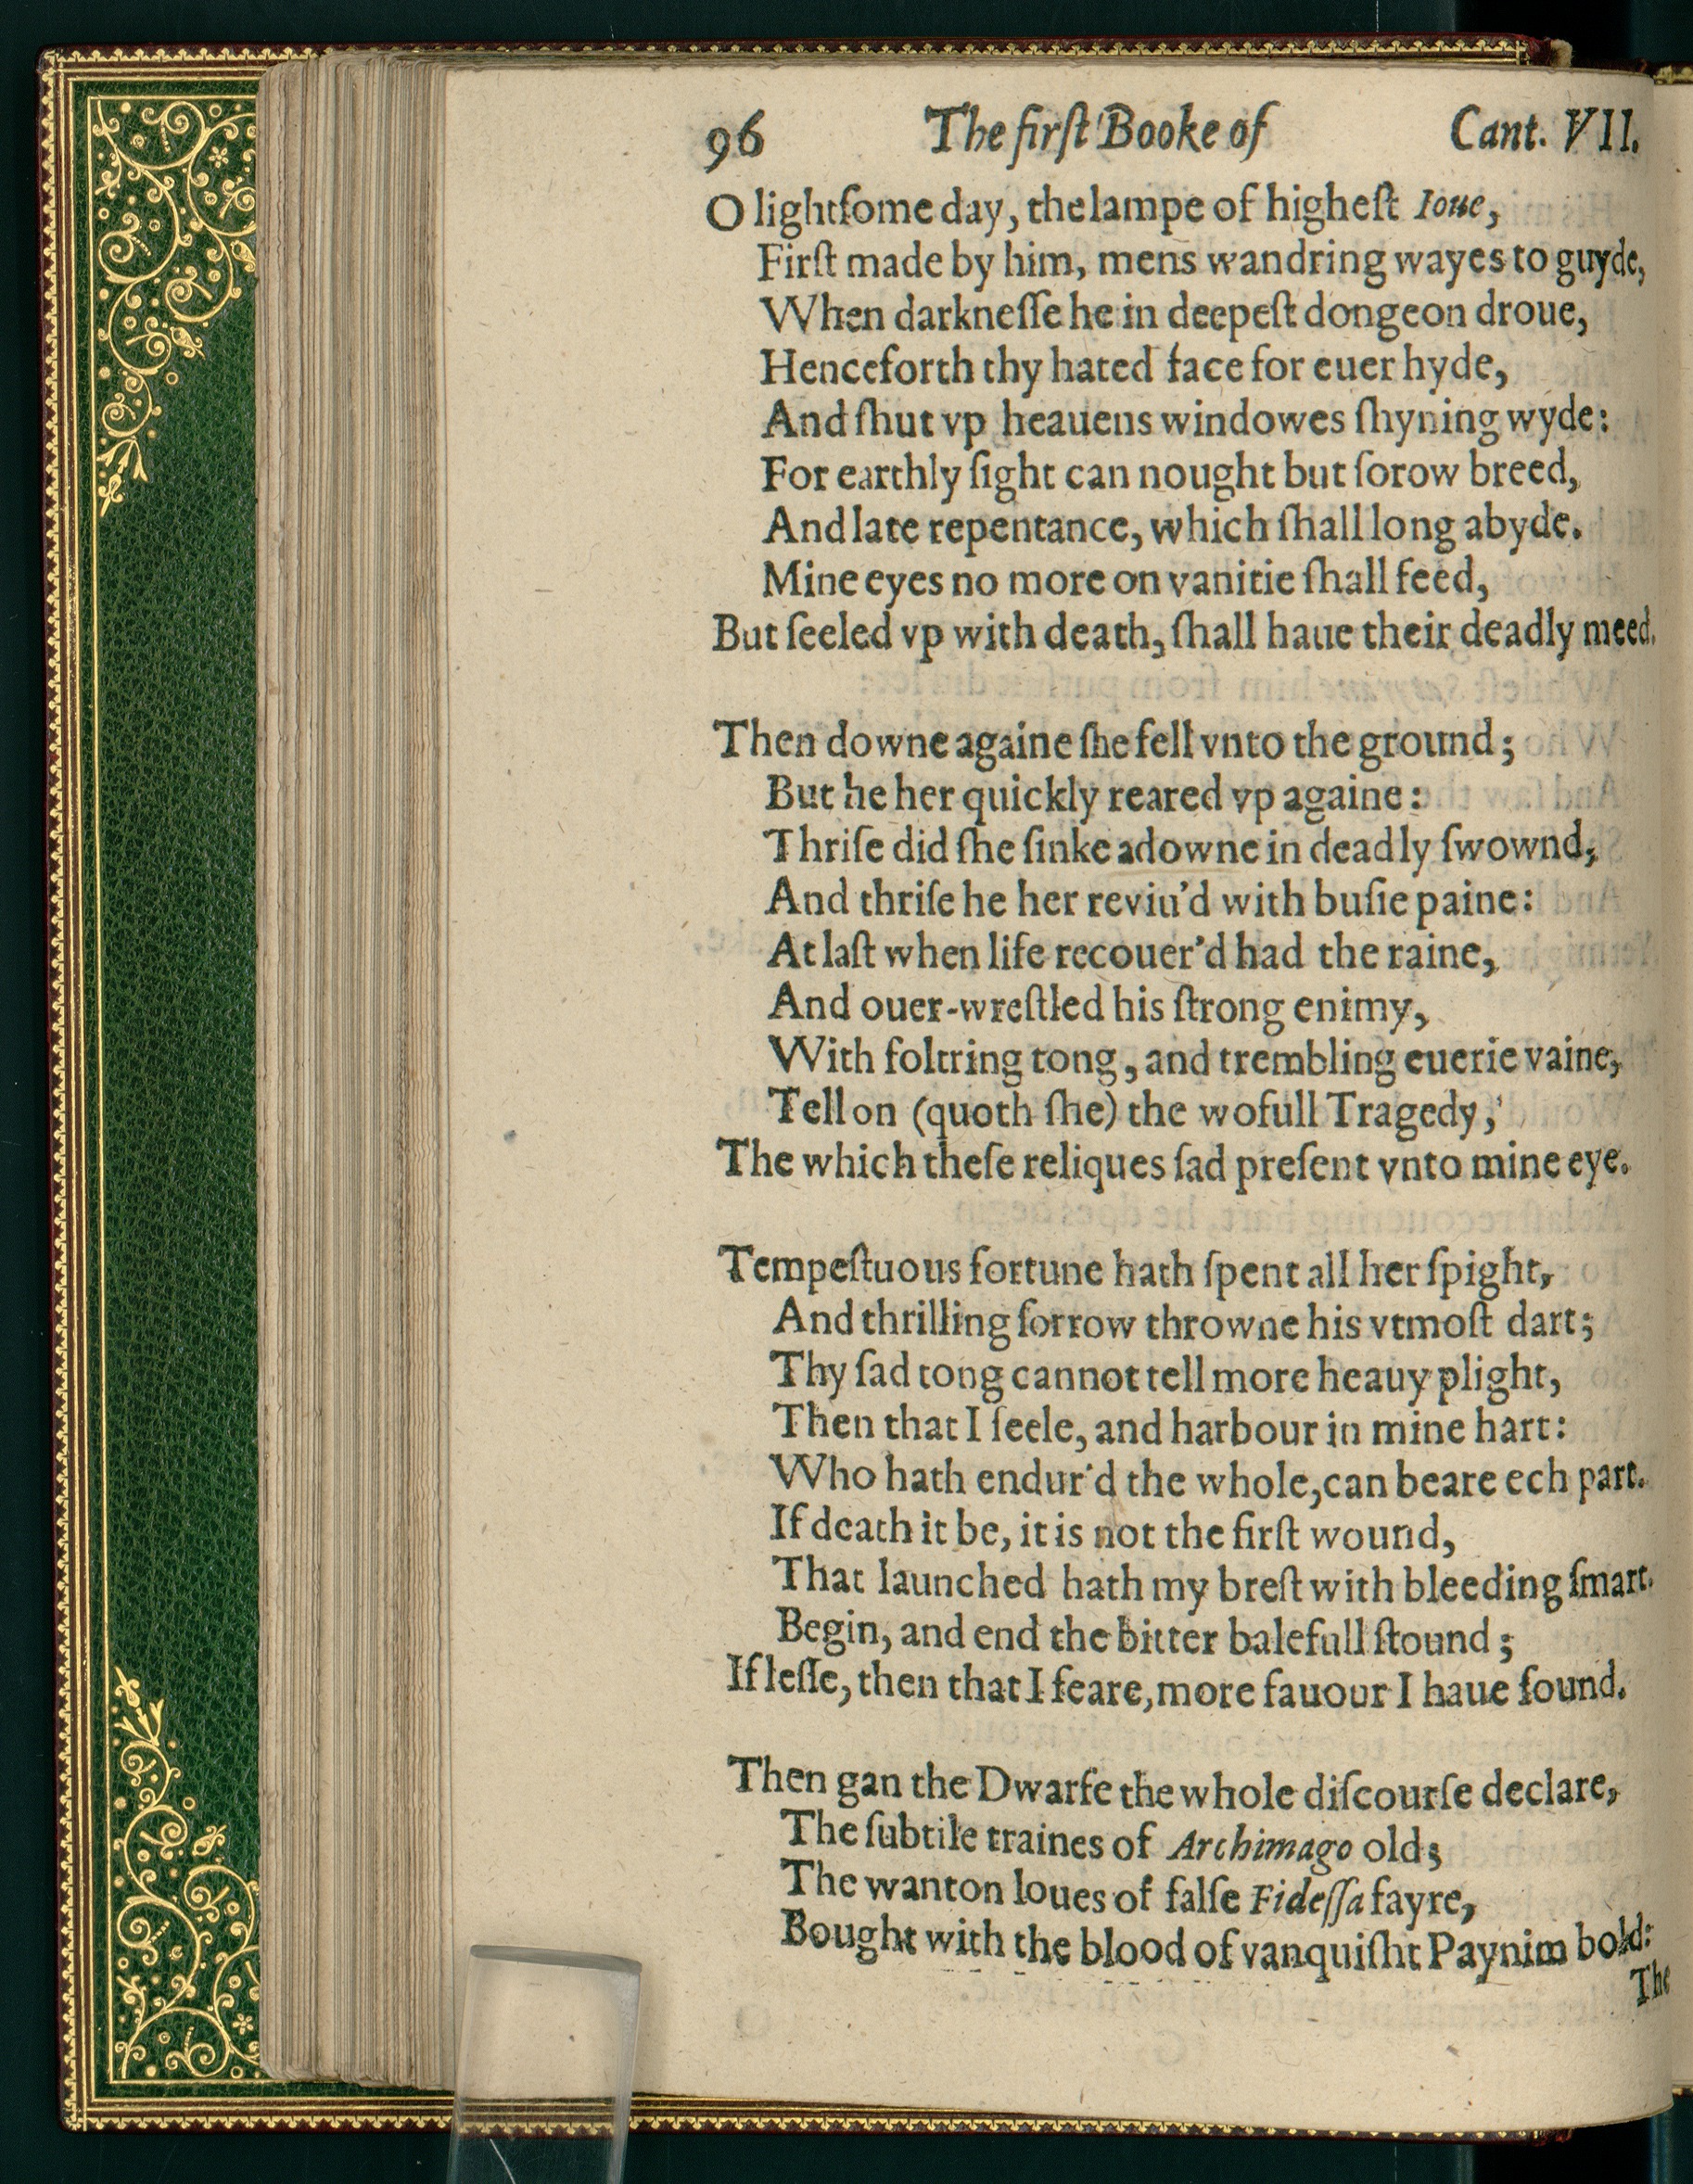 96 The firſt Booke of Cant. VII.
O lightſome day, the lampe of higheſt Ioue,
Firſt made by him, mens wandring wayes to guyde,
When darkneſſe he in deepeſt dongeon droue,
Henceforth thy hated face for euer hyde,
And ſhut vp heauens windowes ſhyning wyde:
For earthly ſight can nought but ſorow breed,
And late repentance, which ſhall long abyde.
Mine eyes no more on vanitie ſhall feed,
But ſeeled vp with death, ſhall haue their deadly meed.
Then downe againe ſhe fell vnto the ground;
But he her quickly reared vp againe:
Thriſe did ſhe ſinke adowne in deadly ſwownd,
And thriſe he her reviu'd with buſie paine:
At laſt when life recouer'd had the raine,
And ouer-wreſtled his ſtrong enimy,
With foltring tong, and trembling euerie vaine,
Tell on (quoth ſhe) the wofull Tragedy,
The which theſe reliques ſad preſent vnto mine eye.
Tempeſtuous fortune hath ſpent all her ſpight,
And thrilling ſorrow throwne his vtmoſt dart;
Thy ſad tong cannot tell more heauy plight,
Then that I feele, and harbour in mine hart:
Who hath endur'd the whole, can beare ech part.
If death it be, it is not the firſt wound,
That launched hath my breſt with bleeding ſmart.
Begin, and end the bitter balefull ſtound;
If leſſe, then that I feare, more fauour I haue found.
Then gan the Dwarfe the whole diſcourſe declare,
The ſubtile traines of Archimago old;
The wanton loues of falſe Fideſſa fayre,
Bought with the blood of vanquiſht Paynim bold:
The